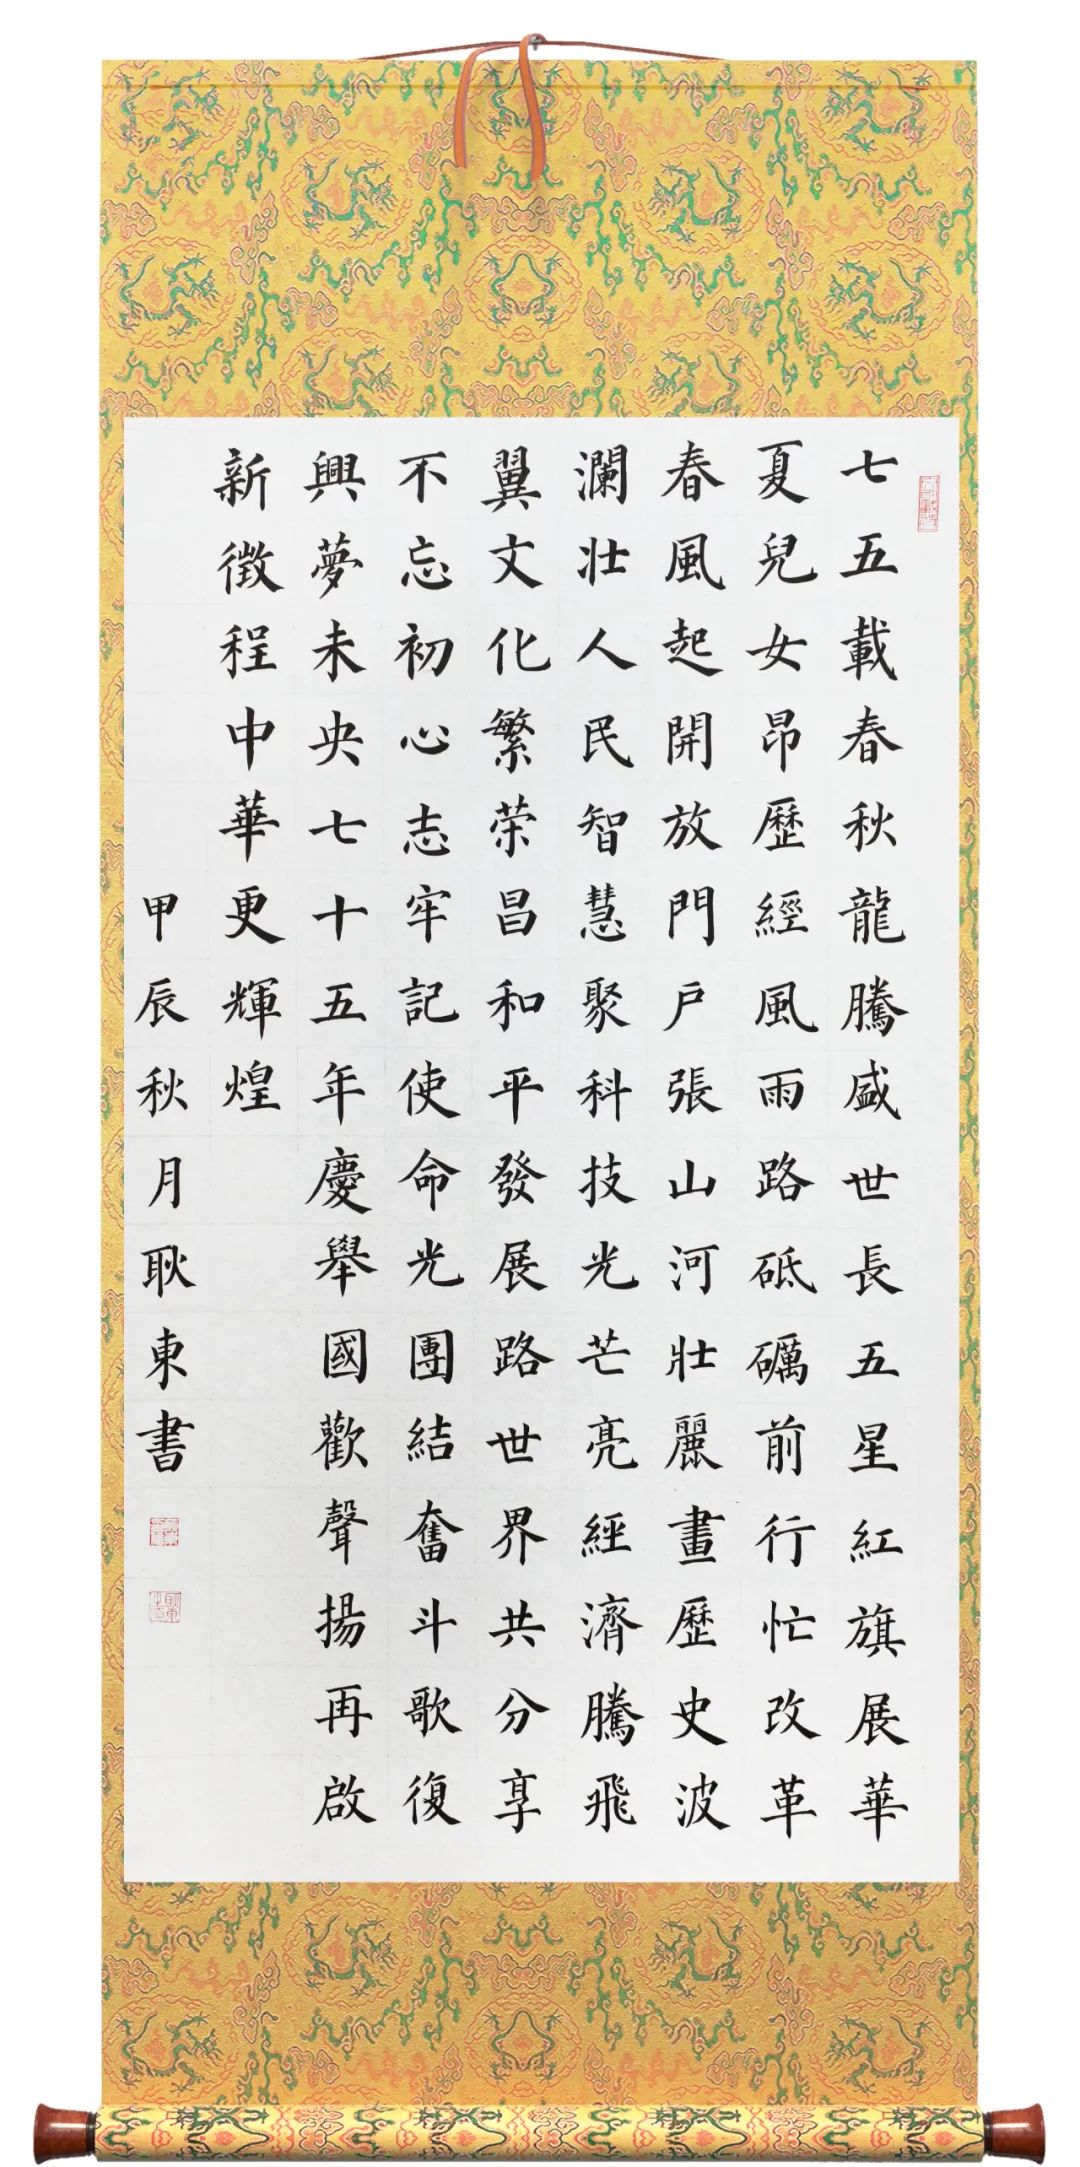 七五載春秋龍騰盛世長五星紅旗展華
夏兒女昂歷經風雨路砥礪前行忙改革
春風起開放門戶張山河壯麗畫歷史波
瀾壮人民智慧聚科技光芒亮經濟騰飛
翼文化繁荣昌和平發展路世界共分享
不忘初心志牢記使命光團結奮斗歌復
興夢未央七十五年慶舉國歡聲揚再啟
新徵程中華更輝煌
甲辰秋月耿東書